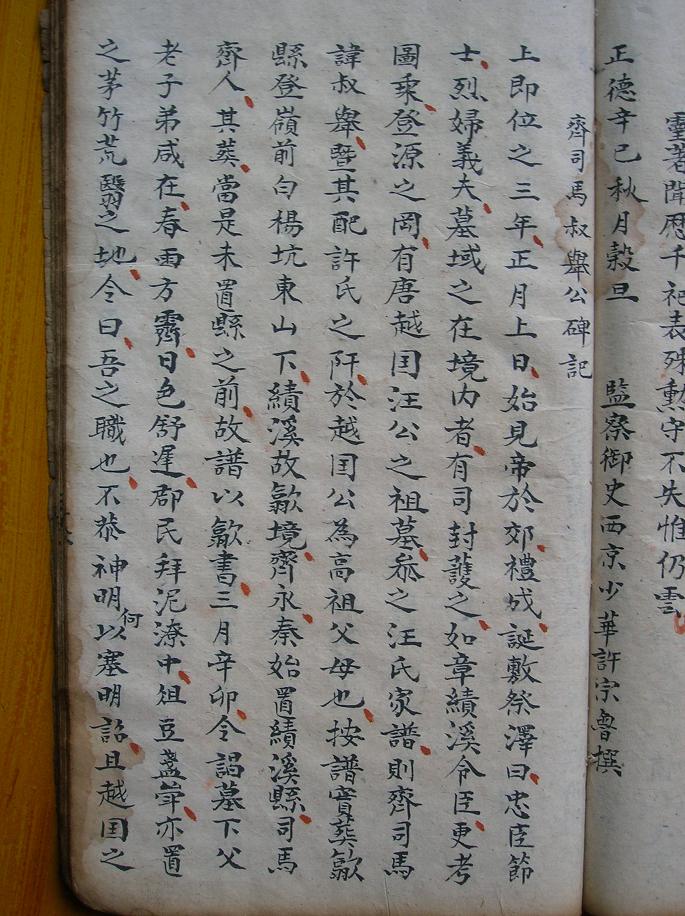 靈著聞歷千祀表殊勲守不失惟仍雲
正德辛巳秋月穀旦 監察御史西京少華許宗魯撰
齊司馬叔舉公碑記
上即位之三年正月上日始見帝於郊禮成誕敷祭澤曰忠臣節
士烈婦義夫墓域之在境內者有司封護之如章績溪令臣更考
圖乘登源之岡有唐越囯汪公之祖墓叅之汪氏家譜則齊司馬
諱叔舉暨其配許氏之阡於越囯公為高祖父母也按譜實葬歙
縣登嶺前白楊坑東山下績溪故歙境齊永泰始置績溪縣司馬
齊人其葬當是未置縣之前故譜以歙書三月辛卯令謁墓下父
老子弟咸在春雨方霽日色舒遲郡民拜泥潦中俎豆盞斚亦置
之茅竹荒翳之地令曰吾之職也不恭神明何以塞明詔且越囯之